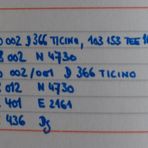 002 D 366 TICINO, 103 153 TEE
002 N 4730
002/001 D 366 TICINO
012 N 4730
401 E 2161
436 Dg